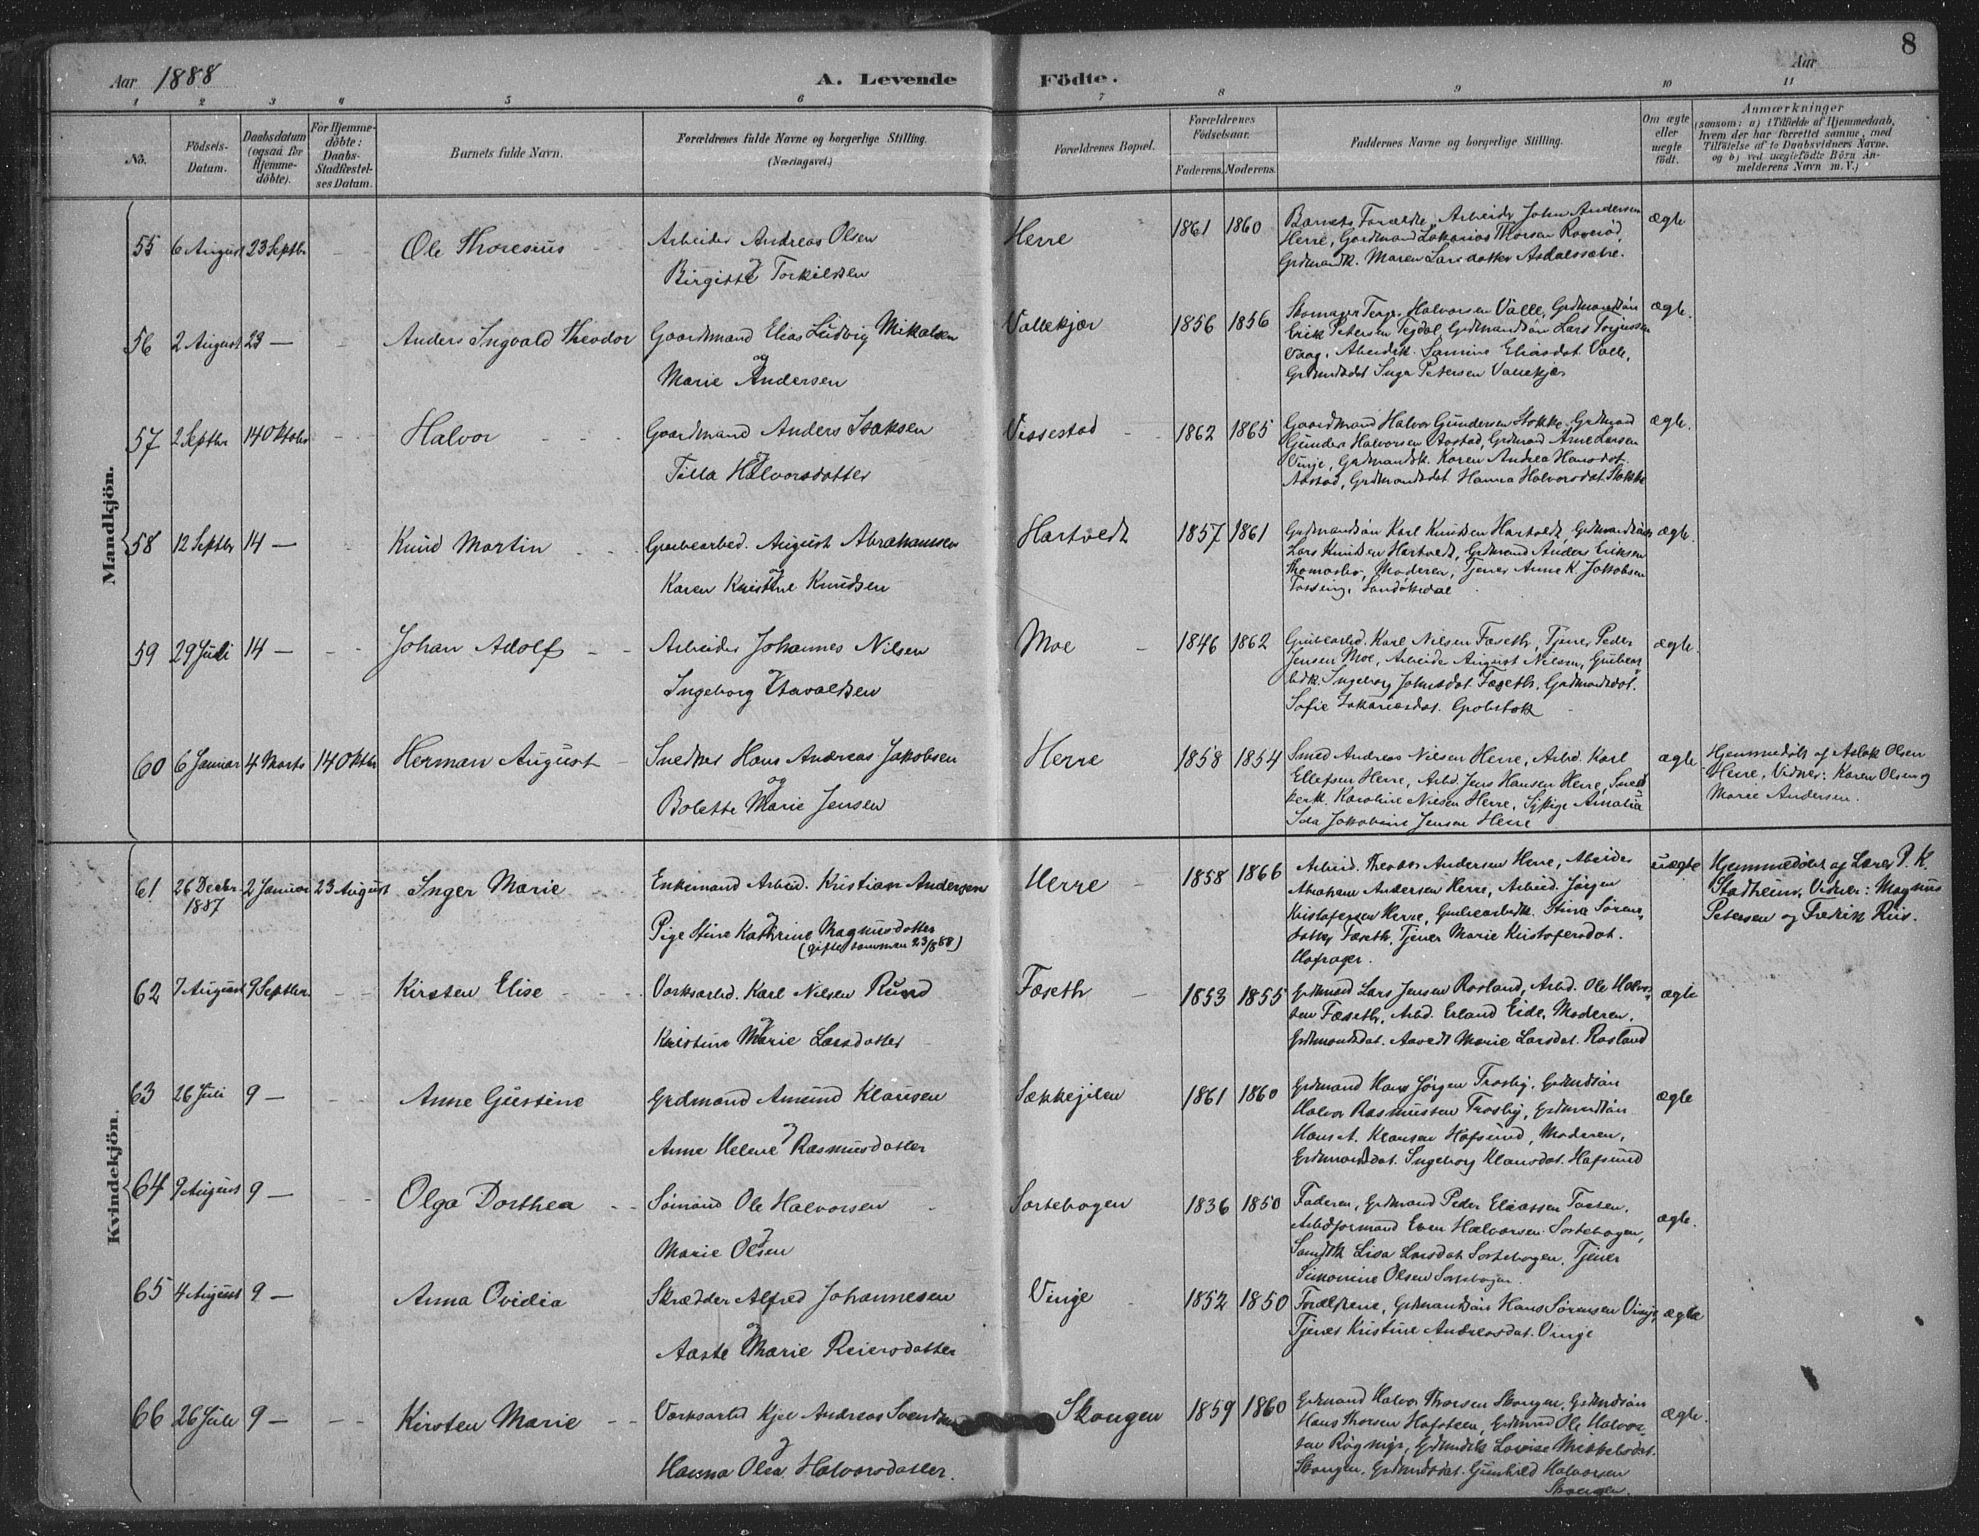 8
Aar 1888
A. Levende Födte.
Aar
1 2 3 4 5 6 7 8 9 10 11
No.
Födsels-Datum.
Daabsdatum (ogsaa for Hjemme-döbte).
För Hjemme-döbte: Daabs-Stadfæstel-ses Datum.
Barnets fulde Navn.
Forældrenes fulde Navne og borgerlige Stilling. (Næringsvei.)
Forældrenes Bopæl.
Forældrenes Födselsaar.
Faderens. Moderens.
Faddernes Navne og borgerlige Stilling.
Om ægte eller uægte födt.
Anmærkninger
(saasom: a) i Tilfælde af Hjemmedaab,
hvem der har forrettet samme, med
Tilföielse af to Daabsvidners Navne.
og b) ved uægtefödte Börn An-
melderens Navn m. V.)
Mandkjön.
55 6 August 23 Septbr Ole Thoresius Arbeider Andreas Olsen
og Birgitte Torkildsen
Herre 1861 1860 Barnets Forældre, Arbeider John Andersen
Herre, Gardmand Zakarias Thorsen
Grdmandk. Maren Larsdatter
ægte
56 2 August 23 — Anders Ingvald Theodor Gaardmand Elias Ludvig Mikalsen
og
Marie Andersen
Vallekjær 1856 1856 Skomager Terje Halvorsen Valle, Grdmandsön
Erik Petersen Tegdal, Grdmandsön Lars
Vaag, Arbeidsk. Eliasdat. Valle,
Grdmandsdat Inga Petersen Vallekjær
ægte.
57 2 Septbr 14 Oktober Halvor Gaardmand Anders Isaksen
og Halvorsdatter
Vissestad 1862 1865 Gaardmand Halvor Gundersen Stokke, Grdmand
Gunder Halvorsen Aastad, Grdmand Arne Larsen
Vinje, Grdmandsk. Karen Andrea Hansdat.
Aastad, Grdmandsdat Hanna Halvorsdat. Stokke
ægte.
58 12 Septbr 14 — Knud Martin Grubearbed. August Abrahamsen
og Karen Kristine Knudsen
Hartvedt 1857 1861 Grdmandsön Karl Knudsen Hartvedt, Grdmandsön
Lars Knudsen Hartvedt, Grdmand Anders Eriksen
Moderen, Tjener Anne K. Jakobsen
ægte.
59 29 Juli 14 — Johan Adolf Arbeider Johannes Nilsen
og Ingeborg
Moe 1846 1862 Grubearbd. Karl Nilsen Fæseth, Tjener Peder
Jensen Moe, Arbeider August Nilsen, Grubear-
bdk. Ingeborg Johnsdat. Fæseth, Grdmandsdat.
Sofie Zakariasdat. Grobstok
ægte.
60 6 Januar 4 Marts 14 Oktbr Herman August Snedker Hans Andreas Jakobsen
og
Bolette Marie Jensen
Herre 1858 1854 Smed Andreas Nilsen Herre, Arbd. Karl
Ellefsen Herre, Arbd. Jens Hansen Herre, Sned-
kerk. Karoline Nilsen Herre, Amalia
Ida Jakobine Jensen Herre
ægte Hjemmedöbt af Aslak Olsen
Herre, Vidner: Karen Olsen og
Marie Andersen.
Kvindekjön.
61 26 Decbr 1887 2 Januar 23 August Inger Marie Enkemand Arbed. Kristian Andersen
og
Pige Stine Kathrine Magnusdatter
(gifte sammen 23/8 88)
Herre 1858 1866 Arbeid. Andersen Herre, Arbeider
Abraham Andersen Herre, Arbeid. Jörgen
Kristofersen Herre, Grubearbdk. Stina Sörens-
datter Fæseth, Tjener Marie Kristofersdat.
uægte Hjemmedöbt af Lærer P. K.
Stadheim, Vidner: Magnus
Petersen og Fredrik Riis.
62 7 August 9 Septbr. Kirsten Elise Værksarbd. Karl Nilsen Rund
og Kristine Marie Larsdatter
Fæseth 1853 1855 Grdmand Lars Jensen Rosland, Arbd. Ole Halvor-
sen Fæseth, Arbd. Erland Eide, Moderen,
Grdmandsdat. Marie Larsdat. Rosland
ægte
63 26 Juli 9 — Anne Gustine Grdmand Amund Klausen
og Anne Helene Rasmusdatter
1861 1860 Grdmand Hans Jörgen Trosby, Grdmandsön
Halvor Rasmussen Trosby, Grdmandsön
Hans A. Klausen Hafsund, Moderen,
Grdmandsdat. Ingeborg Klausdat. Hafsund
ægte
64 9 August 9 — Olga Dorthea Sömand Ole Halvorsen
og Marie Olsen
Sortebogen 1836 1850 Faderen, Grdmand Peder Eliassen
Arbdformand Even Halvorsen Sortebogen,
Lisa Larsdat Sortebogen, Tjener
Simonine Olsen Sortebogen
ægte.
65 4 August 9 — Anna Ovidia Skrædder Alfred Johannesen
og Aaste Marie Reiersdatter
Vinje 1852 1850 Forældrene, Grdmandsön Hans Sörensen Vinje,
Tjener Kristine Andreasdat. Vinje
ægte
66 26 Juli 9 — Kirsten Marie Værksarbd Kjel Andreas Svendsen
og Hanna Olea Halvorsdatter.
Skougen 1859 1860 Grdmand Halvor Thorsen Skougen, Grdmandsön
Hans Thorsen Grdmand Ole Halvor-
sen Rögnige, Grdmandsk Lovise Mikkelsdat.
Skougen, Grdmandsdat. Gunhild Halvorsen
Skougen.
ægte.